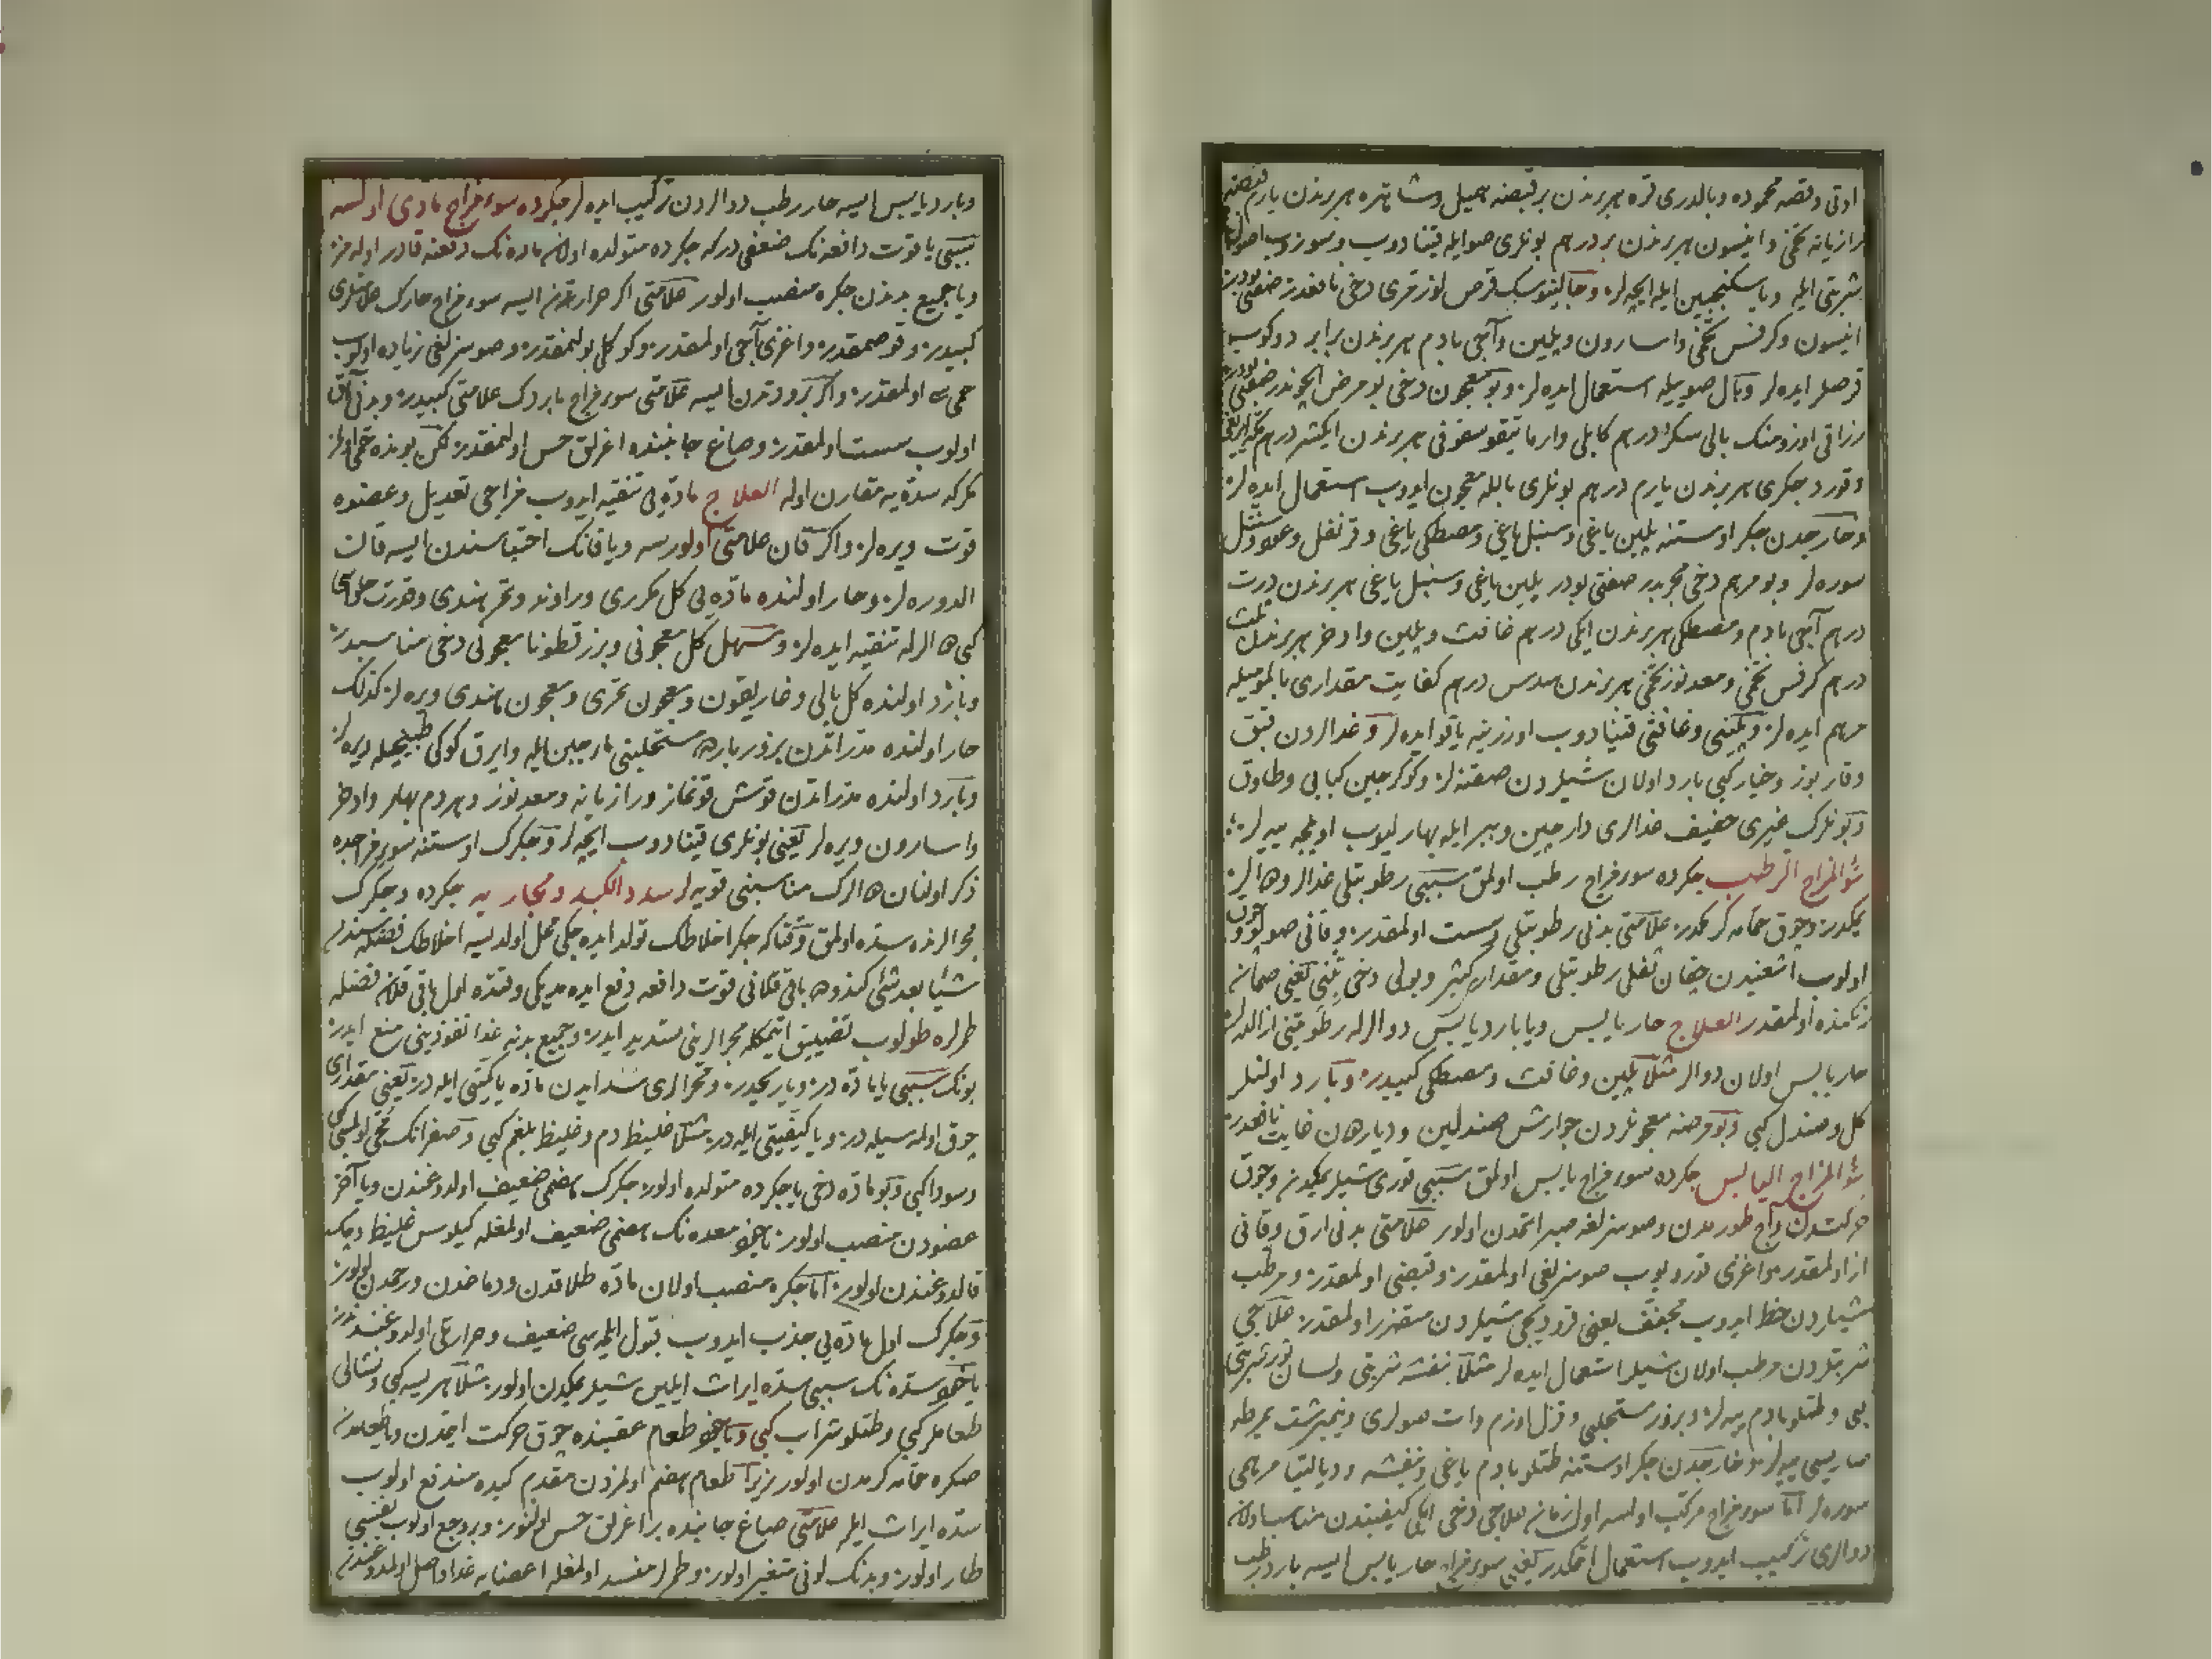 اوتی وقصه محموده وبالدری قره هر برندن بر قبضه همیل وشاهتره هر برندن یارم قبضه
رازیانه تخمی وانیسون هر برندن بر درهم بونلری صوایله قینادوب وسوزوب اصول
شربتی ایله ویا سکنجبین ایله ایچه لر وجالینوسک قرص لوز مری دخی نافعدر صفتی بودر
انیسون وکرفس تخمی واسارون ویلین وآجی بادم هر برندن برابر دوکوب
قرصلر ایده لر وبال صوییله استعمال ایده لر وبو معجون دخی بو مرض ایچوندر صفتی بودر
رزاقی اوزومنک بالی سکز درهم کابلی وارمانیقو سفوفی هر برندن ایکیشر درهم
وقورد جکری هر برندن یارم درهم بونلری بالله معجون ایدوب استعمال ایده لر
وخارجدن جکر اوستنه یلین یاغی وسنبل یاغی ومصطکی یاغی وقرنفل وعود
سوره لر وبو مرهم دخی مجربدر صفتی بودر یلین یاغی وسنبل یاغی هر برندن درت
درهم آجی بادم ومصطکی هر برندن ایکی درهم غافت ویلین واذخر هر برندن ثلث
درهم کرفس تخمی ومعدنوز تخمی هر برندن سدس درهم کفایت مقداری بالمومیله
مرهم ایده لر ویلینی وغافتی قینادوب اوزرینه یاقو ایده لر وغدالردن قبق
وقاربوز وخیار کبی بارد اولان شیلردن صقنه لر وکوکرجین کبابی وطاوق
وبونلرک غیری خفیف غدالری دارچین وببر ایله بهارلیوب اویلجه ییه لر
سؤ المزاج الرطب جکرده سوء مزاج رطب اولمق سببی رطوبتلی غدالر وهالر
یمکدر وچوق حمامه کرمکدر علامتی بدنی رطوبتلی وسست اولمقدر وقانی صولو
اولوب اشغیدن چقان ثفلی رطوبتلی ومقداری کثیر وبولی دخی ثخنی یعنی
اولمقدر العلاج حار یابس ویا بارد یابس دوالرله رطوبتنی ازاله
حار یابس اولان دوالر مثلا یلین وغافت ومصطکی کبیدر وبارد اولنلر
کل وصندل کبی وبو مرضه معجونلردن جوارش صندلین ودیارهان غایت نافعدر
سؤ المزاج الیابس جکرده سوء مزاج یابس اولمق سببی قوری شیلر یمکدن وچوق
حرکتدن وآج طورمدن وصوسزلغه صبر اتمدن اولور علامتی بدنی ارق وقانی
از اولمقدر واغزی قورویوب صوسزلغی اولمقدر وقبضی اولمقدر ومرطب
شیلردن حظ ایدوب مجفف یعنی قورودیجی شیلردن متضرر اولمقدر علاجی
شربتلردن مرطب اولان شیلر استعمال ایده لر مثلا بنفشه شربتی ولسان ثور شربتی
کبی وطتلو بادم ییه لر وبزور مستحلبی وقزل اوزم وات صولری ونیمبرشت یمرطه
صاریسی ییه لر وخارجدن جکر اوستنه طتلو بادم یاغی وبنفشه ودیالتیا مرهمی
سوره لر اما سوء مزاج مرکب اولسه اول زمانه علاجی دخی ایکی کیفیتدن مناسب اولان
دوالری ترکیب ایدوب استعمال اتمکدر یعنی سوء مزاج حار یابس ایسه بارد رطب
وبارد یابس ایسه حار رطب دوالردن ترکیب ایده لر جکرده سوء مزاج مادی اولسه
سببی یا قوت دافعه نک ضعفی در که جکرده متولده اولان ماده نک دفعنه قادر اوله مز
ویا جمیع بدندن جکره منصب اولور علامتی اکر حرارتدن ایسه سوء مزاج حارک علامتلری
کبیدر وقوصمقدر واغزی آجی اولمقدر وکوکلی بولنمقدر وصوسزلغی زیاده اولوب
حمی اولمقدر واکر برودتدن ایسه علامتی سوء مزاج باردک علامتی کبیدر وبدنی آق
اولوب سست اولمقدر وصاغ جانبنده اغرلق حس اولنمقدر لکن بونده حمی اولمز
مکر که سدّه یه مقارن اوله العلاج ماده یی تنقیه ایدوب مزاجی تعدیل وعضوه
قوت ویره لر واکر قان علامتی اولورسه ویا قانک احتباسندن ایسه قان
الدوره لر وحار اولنده ماده یی کل مکرری وراوند وتمر هندی وقدرت حلواسی
کبی هالرله تنقیه ایده لر ومسهل کل معجونی وبزر قطونا معجونی دخی مناسبدر
وبارد اولنده کل بالی وغاریقون ومعجون تمری ومعجون هندی ویره لر کذلک
حار اولنده مدراتدن بزور بارده مستحلبنی مارجبین ایله وایرق کوکی طبیخیله ویره لر
وبارد اولنده مدراتدن قوش قونماز ورازیانه ومعدنوز وهردم بهار واذخر
واسارون ویره لر یعنی بونلری قینادوب ایچه لر وجکرک اوستنه سوء مزاجده
ذکر اولنان هالرک مناسبنی قویه لر سدد الکبد ومجاریه جکرده وجکرک
مجرالرنده سده اولمق وقتاکه جکر اخلاطک تولد ایده جکی محل اولدیسه اخلاطک فضله سندن
شیئا بعد شئ کندوده باقی قلانی قوت دافعه دفع ایده مدیکی وقتده اول باقی قلان فضله
طمرلره طولوب تضییق اتمکله مجرالرنی تسدید ایدر وجمیع بدنه غدا نفوذینی منع ایدر
بونک سببی یا ماده در ویا ریحدر ومجرالری سد ایدن ماده یا کمیتی ایله در یعنی مقداری
چوق اولمسیله در ویا کیفیتی ایله در مثلا غلیظ دم وغلیظ بلغم کبی وصفرانک
وسودا کبی وبو ماده دخی یا جکرده متولده اولور جکرک هضمی ضعیف اولدوغندن ویا آخر
عضودن منصب اولور یاخود معده نک هضمی ضعیف اولمغله کیلوس غلیظ
قالدوغندن اولور اما جکره منصب اولان ماده طلاقدن ودماغدن ورحمدن اولور
وجکرک اول ماده یی جذب ایدوب قبول ایلمسی ضعیف وحرارتلی اولدوغندندر
یاخود سده نک سببی سده ایراث ایلین شیلر یمکدن اولور مثلا هریسه کبی ونشالی
طعاملر کبی وطتلو شراب کبی ویاخود طعام عقبنده چوق حرکت ایتمدن ویا طعامدن
صکره حمامه کرمدن اولور زیرا طعام هضم اولمزدن مقدم کبده مندفع اولوب
سده ایراث ایلر علامتی صاغ جانبنده بر اغرلق حس اولنور وبر وجع اولوب نفسی
طار اولور وبدنک لونی متغیر اولور وطمرلر منسد اولمغله اعضایه غدا واصل اولمدوغندن